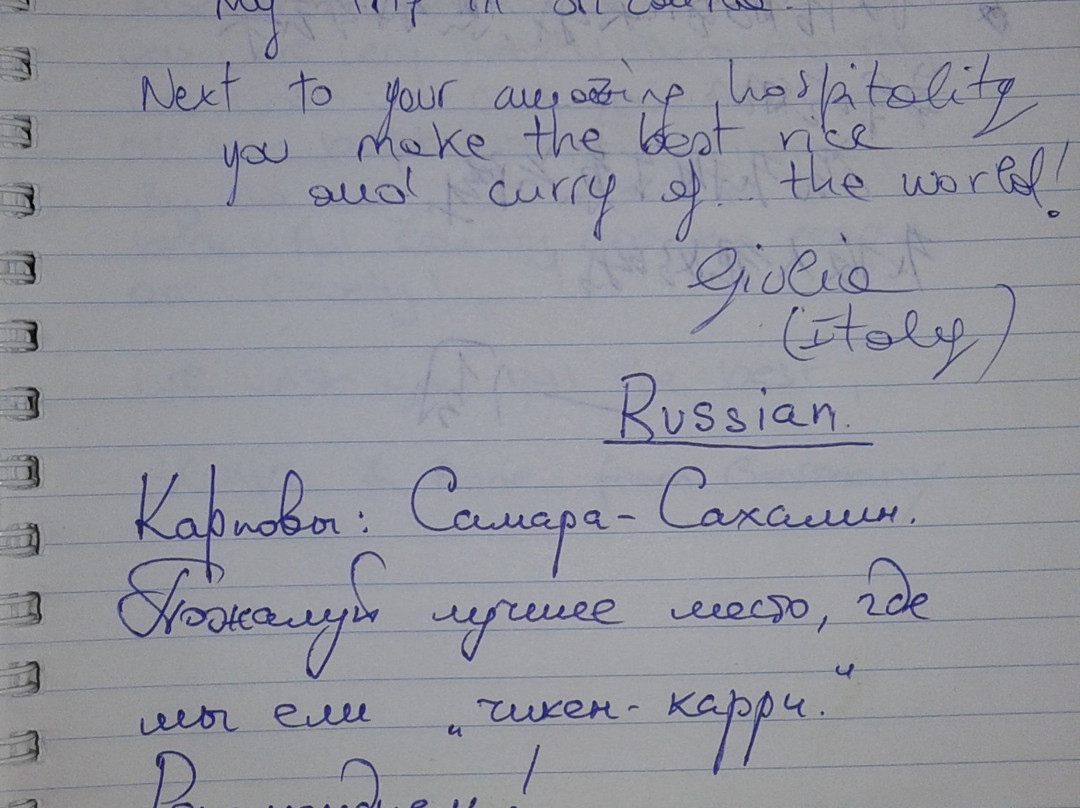 My trip in
Next to your amazing hospitality
you make the best rice
and curry of the world!
Giulia
(Italy)
Russian.
Карповы: Самара - Сахалин.
Пожалуй лучшее место, где
мы ели „чикен-карри."
Рекомендуем!